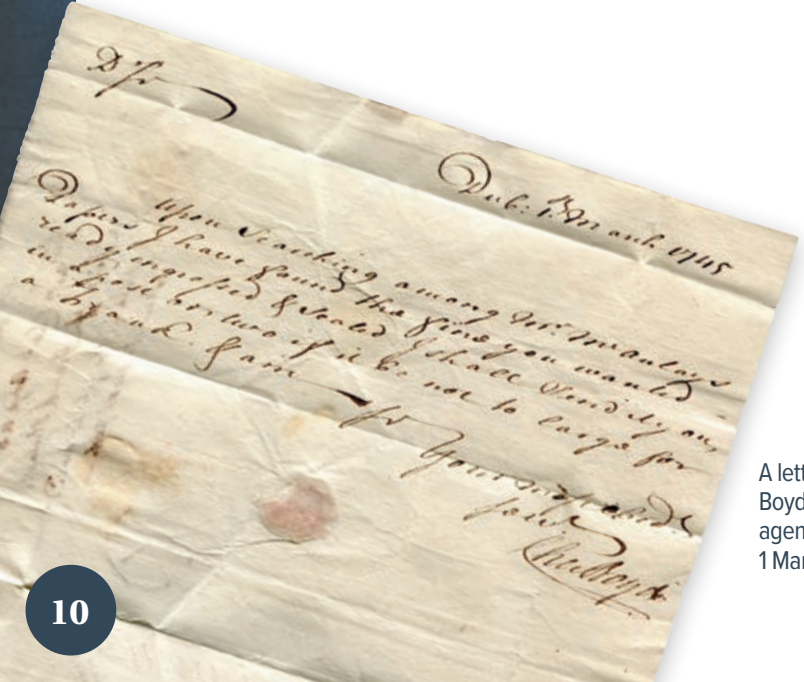 Dr Sr
Dub: 1st March 1745
Upon Searching among Mr.
Papers I have found the fine you wanted
ready engrossed & Sealed I shall Send it you
in a post or two if it be not to large for
a Frank. I am
Sr
Your
Servt
Boyd
10
A lett
Boyd
agen
1 Mar